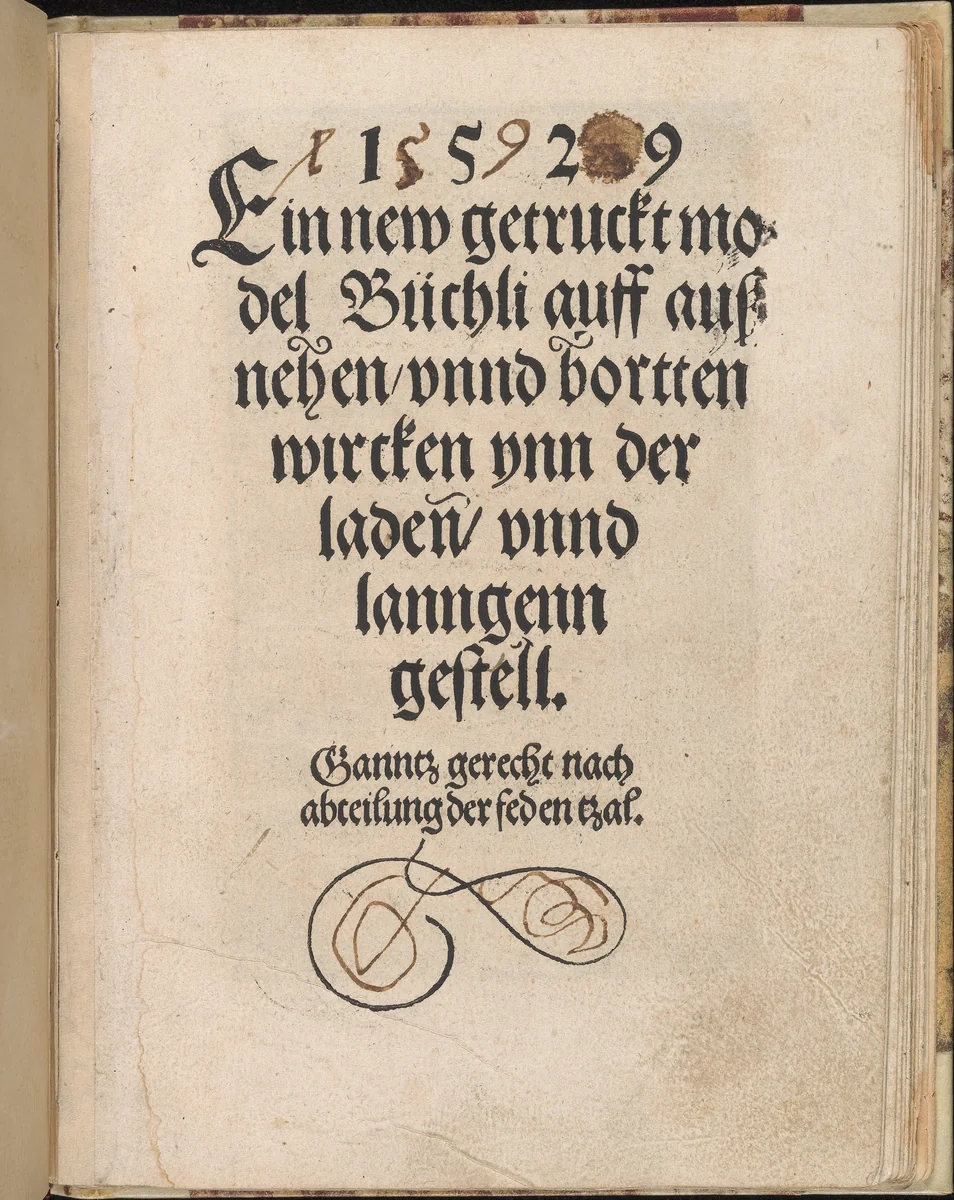 1 1 5 5 9 2 9
Ein new getruckt mo
del Büchli auff auß
nehen/vnnd bortten
wircken ynn der
ladeñ/ vnnd
lanngenn
gestell.
Ganntz gerecht nach
abteilung der feden tzal.